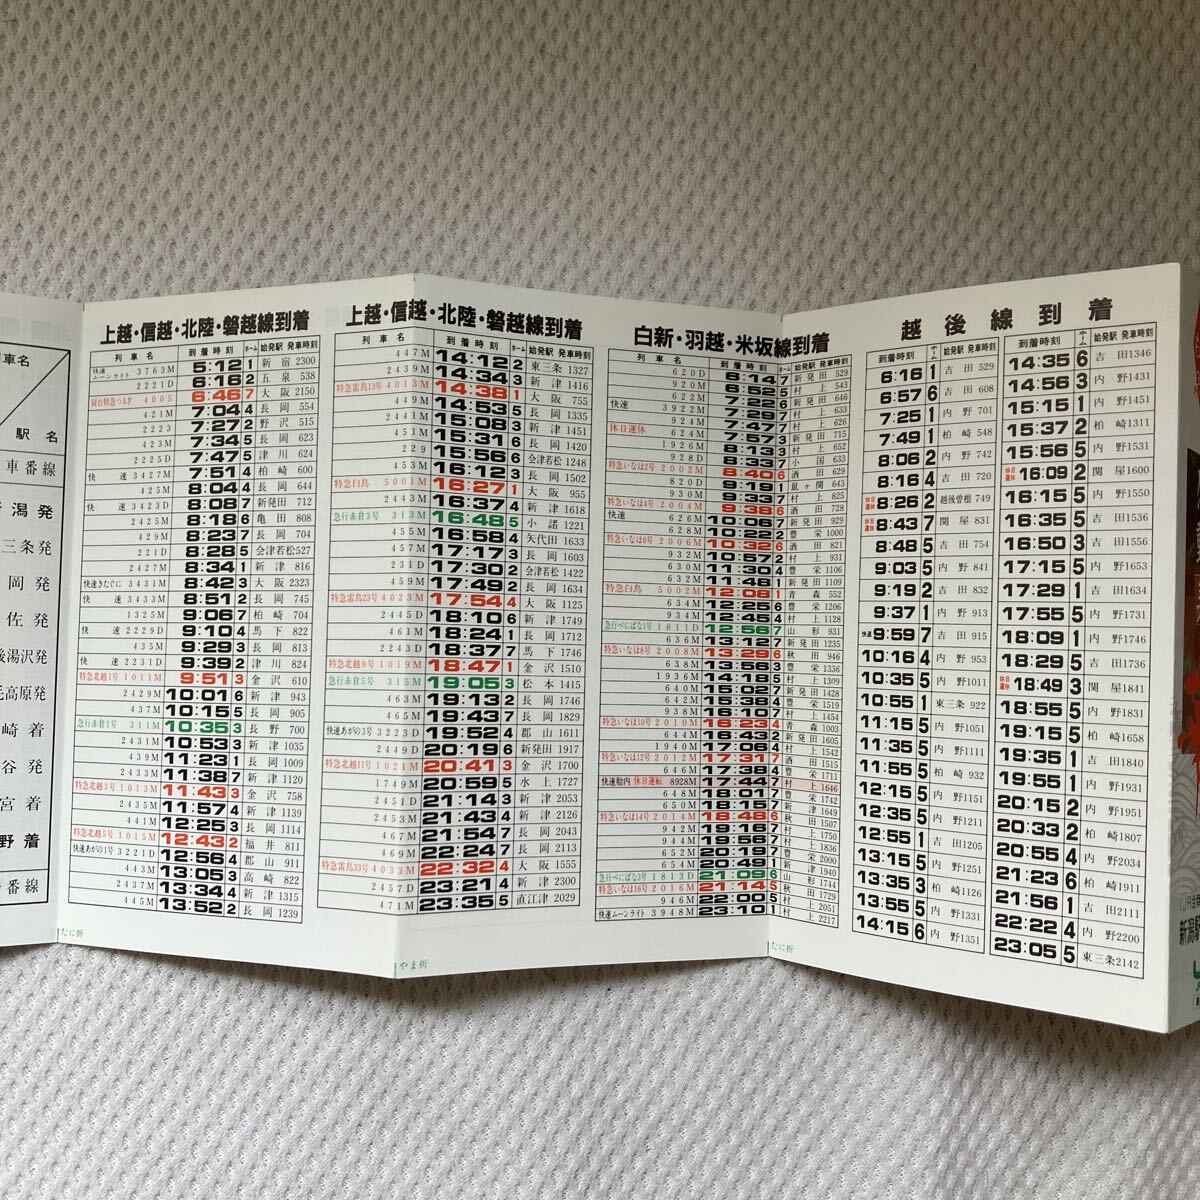 列車名
駅名
車番線
潟発
三条発
岡発
佐発
後湯沢発
高原発
崎着
谷発
宮着
野着
番線
上越・信越・北陸・磐越線到着
列車名 到着時刻 ホーム 始発駅 発車時刻
快速ムーンライト 3763M 5:12 1 新宿 2300
2221D 6:16 2 五泉 538
寝台特急つるぎ 4005 6:46 7 大阪 2150
421M 7:04 4 長岡 554
2223 7:27 2 野沢 515
423M 7:34 5 長岡 623
2225D 7:47 5 津川 624
快速 3427M 7:51 4 柏崎 600
425M 8:04 4 長岡 644
快速 3423D 8:08 7 新発田 712
2425M 8:18 6 亀田 808
429M 8:23 7 長岡 704
221D 8:28 5 会津若松 527
2427M 8:34 1 新津 816
快速きたぐに 3431M 8:42 3 大阪 2323
快速 3433M 8:51 2 長岡 745
1325M 9:06 7 柏崎 704
快速 2229D 9:10 4 馬下 822
435M 9:29 3 長岡 813
快速 2231D 9:39 2 津川 824
特急北越1号 1011M 9:51 3 金沢 610
2429M 10:01 6 新津 943
437M 10:15 5 長岡 905
急行赤倉1号 311M 10:35 3 長野 700
2431M 10:53 3 新津 1035
439M 11:23 1 長岡 1009
2433M 11:38 7 新津 1120
特急北越3号 1013M 11:43 3 金沢 758
2435M 11:57 4 新津 1139
441M 12:25 3 長岡 1114
特急北越5号 1015M 12:43 2 福井 811
快速あがの1号 3221D 12:56 4 郡山 911
443M 13:05 3 高崎 822
2437M 13:34 4 新津 1315
445M 13:52 2 長岡 1239
たに折
上越・信越・北陸・磐越線到着
列車名 到着時刻 ホーム 始発駅 発車時刻
447M 14:12 2 東三条 1327
2439M 14:34 3 新津 1416
特急雷鳥13号 4013M 14:38 1 大阪 755
449M 14:53 5 長岡 1335
2441M 15:08 3 新津 1451
451M 15:31 6 長岡 1420
229 15:56 6 会津若松 1248
453M 16:12 3 長岡 1502
特急白鳥 5001M 16:27 1 大阪 955
2443M 16:37 4 新津 1618
急行赤倉3号 313M 16:48 5 小諸 1221
455M 16:58 4 矢代田 1633
457M 17:17 3 長岡 1603
231D 17:30 2 会津若松 1422
459M 17:49 2 長岡 1634
特急雷鳥23号 4023M 17:54 4 大阪 1125
2445D 18:10 6 新津 1749
461M 18:24 1 長岡 1712
233D 18:37 7 馬下 1746
特急北越9号 1019M 18:47 1 金沢 1510
急行赤倉5号 315M 19:05 3 松本 1415
463M 19:13 2 長岡 1746
465M 19:43 7 長岡 1829
快速あがの3号 3223D 19:52 4 郡山 1611
2449D 20:19 6 新発田 1917
特急北越11号 1021M 20:41 3 金沢 1700
1747M 20:59 5 水上 1727
2451D 21:14 3 新津 2053
2453D 21:43 4 新津 2126
467M 21:54 7 長岡 2043
469M 22:24 7 長岡 2113
特急雷鳥33号 4033M 22:32 4 大阪 1555
2457D 23:21 4 新津 2300
471M 23:35 5 直江津 2029
やま折
白新・羽越・米坂線到着
列車名 到着時刻 ホーム 始発駅 発車時刻
620D 6:14 7 新発田 529
920M 6:52 5 村上 543
622M 7:22 6 新発田 646
快速 3922M 7:29 7 村上 633
924M 7:47 7 村上 626
休日運休 624M 7:57 3 新発田 715
926M 8:13 7 村上 652
928D 8:33 7 小国 633
特急いなほ2号 2002M 8:40 6 酒田 629
820D 9:19 1 鼠ヶ関 643
930M 9:33 7 村上 825
特急いなほ4号 2004M 9:38 6 酒田 728
快速 626M 10:06 7 新発田 929
628M 10:22 7 豊栄 1000
特急いなほ6号 2006M 10:32 6 酒田 821
932M 10:57 2 村上 931
630M 11:30 4 豊栄 1106
632M 11:48 1 新発田 1109
特急白鳥 5002M 12:08 1 青森 552
634M 12:25 6 豊栄 1206
934M 12:45 4 村上 1128
急行べにばな1号 1811D 12:56 7 山形 931
636M 13:12 7 新発田 1235
特急いなほ8号 2008M 13:29 6 秋田 946
638M 13:56 3 豊栄 1336
936M 14:19 5 村上 1308
640M 15:02 7 新発田 1428
642M 15:38 7 豊栄 1519
938M 16:10 7 村上 1454
特急いなほ10号 2010M 16:23 4 青森 1003
644M 16:43 2 新発田 1605
1940M 17:06 4 村上 1542
特急いなほ12号 2012M 17:31 7 酒田 1515
646M 17:38 4 豊栄 1711
快速胎内 休日運転 8928M 17:44 7 村上 1646
648M 18:01 7 豊栄 1742
650M 18:15 7 新津 1649
特急いなほ14号 2014M 18:48 6 秋田 1507
942M 19:16 7 村上 1750
944M 19:56 7 村上 1836
652M 20:19 7 豊栄 2000
654M 20:49 7 新津 1940
急行べにばな3号 1813D 21:09 6 山形 1744
特急いなほ16号 2016M 21:14 5 秋田 1729
946M 22:00 5 村上 2042
快速ムーンライト 3948M 23:10 1 村上 2217
たに折
越後線到着
到着時刻 ホーム 始発駅 発車時刻
6:16 1 吉田 529
6:57 6 吉田 608
7:25 1 内野 701
7:49 1 柏崎 548
8:06 2 内野 742
8:16 4 吉田 720
休日運休 8:26 2 越後曽根 749
休日運休 8:43 7 関屋 831
8:48 5 吉田 754
9:03 5 内野 841
9:19 2 吉田 832
9:37 1 内野 913
快速 9:59 7 吉田 915
10:16 4 内野 953
10:35 5 内野 1011
10:55 1 東三条 922
11:15 5 内野 1051
11:35 5 内野 1111
11:55 5 柏崎 932
12:15 5 内野 1151
12:35 5 内野 1211
12:55 1 吉田 1205
13:15 5 内野 1251
13:35 3 柏崎 1126
13:55 5 内野 1331
14:15 6 内野 1351
到着時刻 ホーム 始発駅 発車時刻
14:35 6 吉田 1346
14:56 3 内野 1431
15:15 1 内野 1451
15:37 2 柏崎 1311
15:56 5 内野 1531
休日運休 16:09 2 関屋 1600
16:15 5 内野 1550
16:35 5 吉田 1536
16:50 3 吉田 1556
17:15 5 内野 1653
17:29 1 吉田 1634
17:55 5 内野 1731
18:09 1 内野 1746
18:29 5 吉田 1736
休日運休 18:49 3 関屋 1841
18:55 5 内野 1831
19:15 5 柏崎 1658
19:35 1 吉田 1840
19:55 1 内野 1931
20:15 2 内野 1951
20:33 2 柏崎 1807
20:55 4 内野 2034
21:23 6 柏崎 1911
21:56 1 吉田 2111
22:22 4 内野 2200
23:05 5 東三条 2142
新潟駅